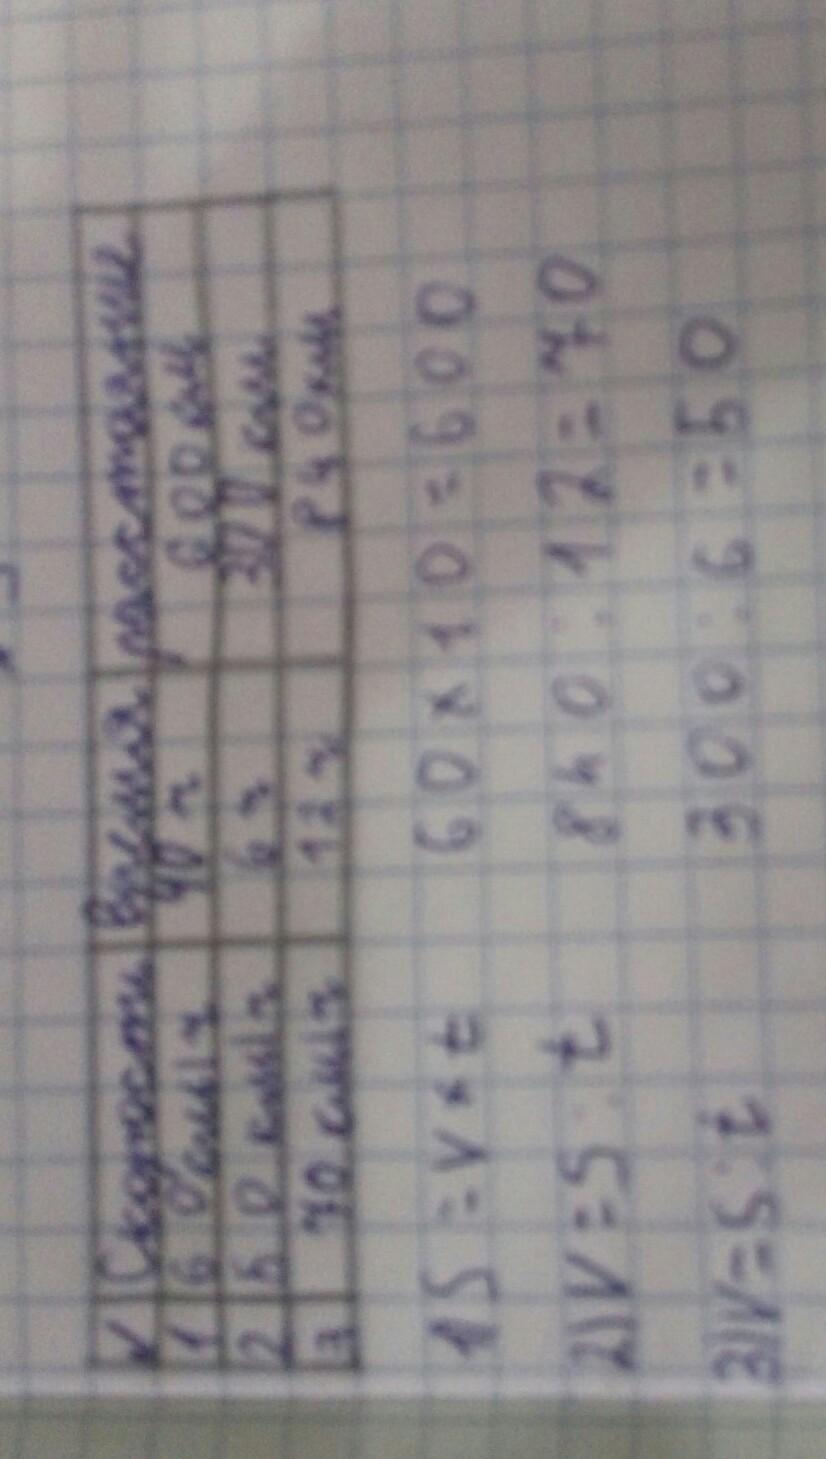 √ Скорость Время расстояние
1 60км/ч 10 ч 600 км
2 50 км/ч 6 ч 300 км
3 70 км/ч 12 ч 840км
1 S = V × t 60 × 10 = 600
2) V = S : t 840 : 12 = 70
3) V = S : t 300 : 6 = 50